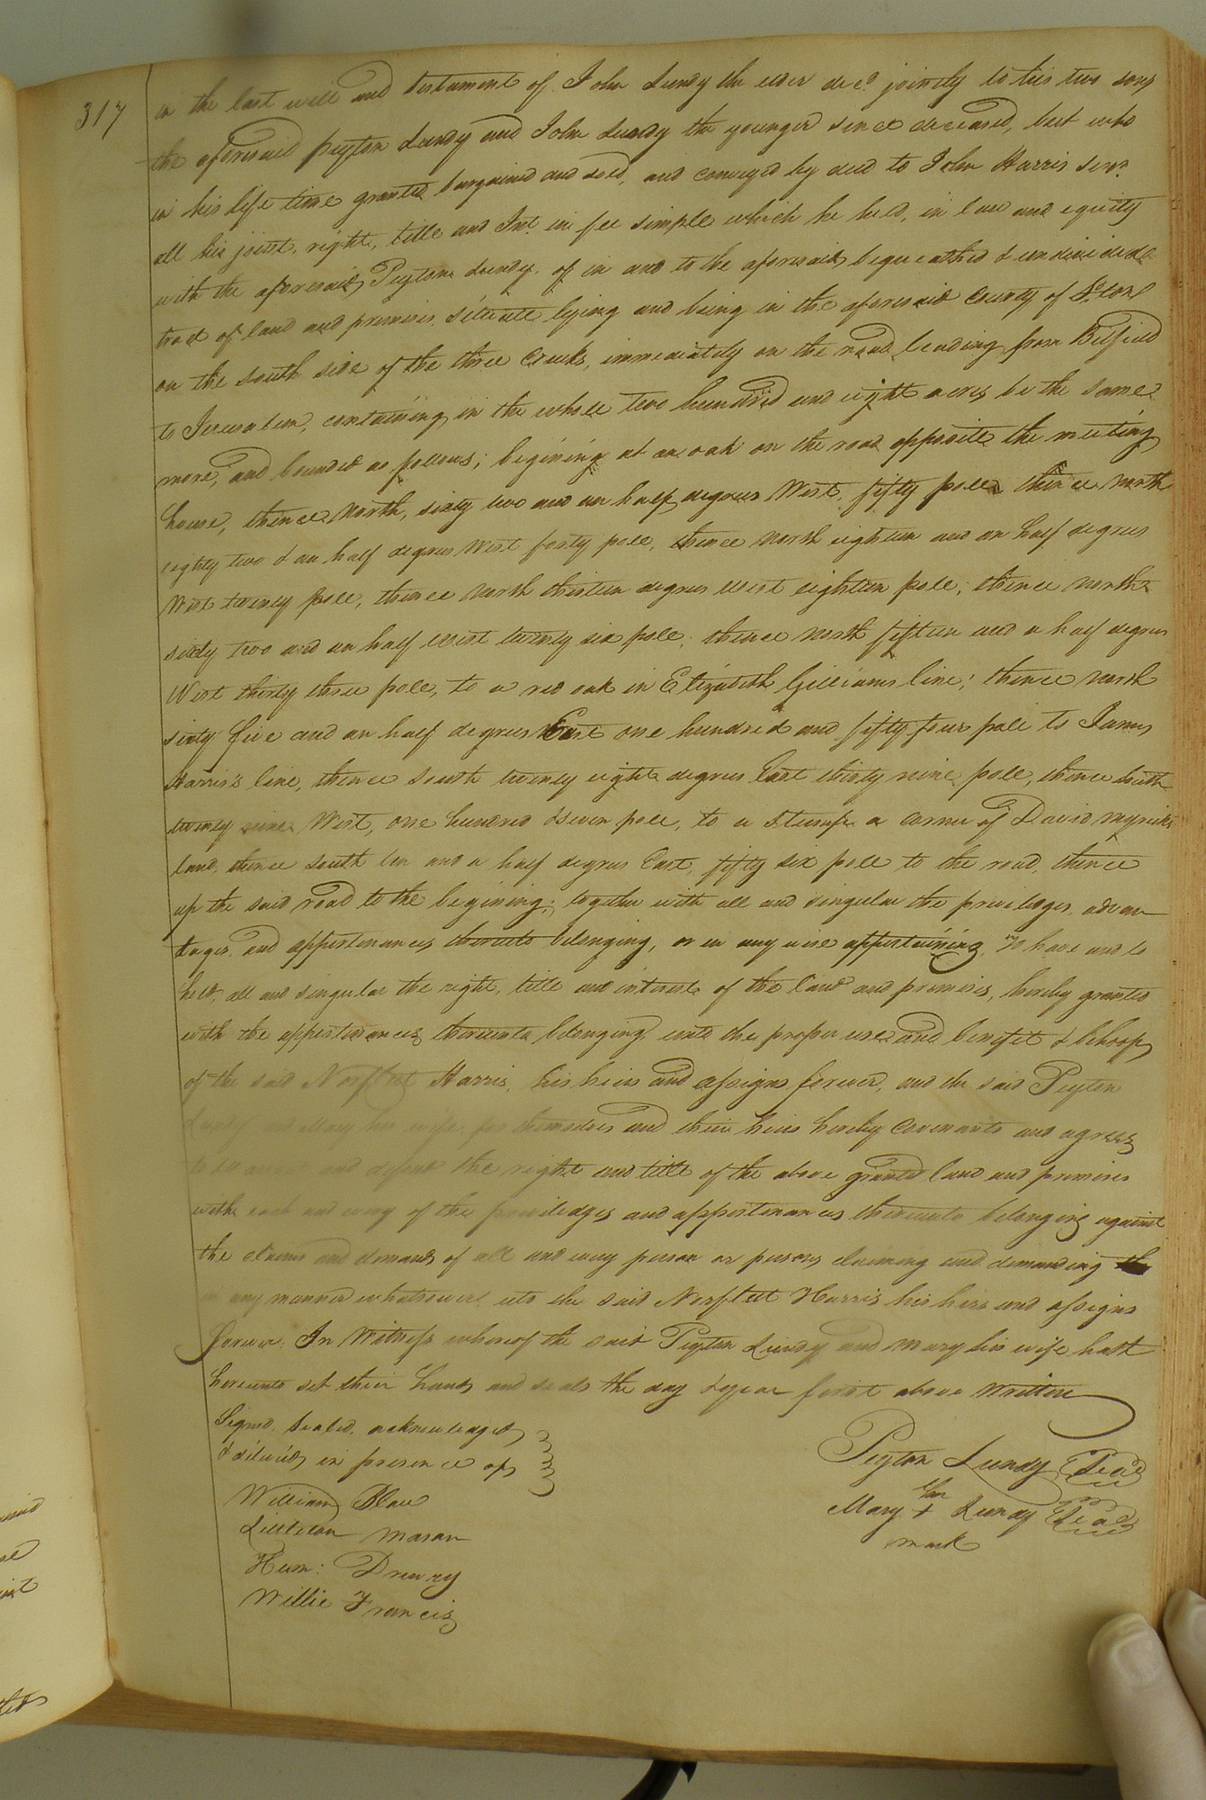 317
in the last will and testament of John Lundy the elder decd. jointly to his two sons
the aforesaid Peyton Lundy and John Lundy the younger since deceased, but who
in his life time granted bargained and sold, and conveyed by deed to John Harris senr.
all his joint, right, title and Int. in fee simple which he held, in law and equity
with the aforesaid Peyton Lundy, of in and to the aforesaid bequeathed & undivided
tract of land and premises situate lying and being in the aforesaid County of So.ton
on the south side of the three Creeks, immediately on the road leading from Belfield
to Jerusalem, containing in the whole two hundred and eight acres be the same
more, and bounded as follows; begining at an oak on the road opposite the meeting
house, thence North, sixty two and an half degrees West, fifty pole, thence North
eighty two & an half degrees West forty pole, thence North eighteen and an half degrees
West twenty pole, thence North thirteen degrees West eighteen pole; thence north
sixty two and an half West twenty six pole; thence North fifteen and a half degrees
West thirty three pole, to a red oak in Elizabeth Gilliams line; thence North
sixty five and an half degrees East one hundred and fifty four pole to James
Harris's line, thence South twenty eight degrees East thirty nine pole, thence South
twenty nine West, one hundred & seven pole, to a Stump a corner of David Myricks
land, thence South ten and a half degrees East, fifty six pole to the road, thence
up the said road to the begining; together with all and singular the priviledges advan
tages, and appurtenances thereunto belonging, or in any wise appertaining, To have and to
hold, all and singular the right, title and interest of the land and premises, hereby granted
with the appurtenances thereunto belonging unto the proper use and benefit & behoof
of the said Norfleet Harris, his heirs and assigns forever, and the said Peyton
Lundy and Mary his wife, for themselves and their heirs hereby Covenants and agrees
to warrant and defend the right and title of the above granted land and premises
with each and every of the priviledges and appurtenances thereunto belonging against
the claims and demands of all and every person or persons claiming and demanding the
in any manner whatsoever unto the said Norfleet Harris his heirs and assigns
forever. In Witness whereof the said Peyton Lundy and Mary his wife hath
hereunto set their hands and seals the day & year first above written
Signed, Sealed, acknowledged
& delivered in presence of
William Blow
Littleton Mason
Hum: Drewry
Willie Francis
Peyton Lundy Seal
her
Mary + Lundy Seal
mark